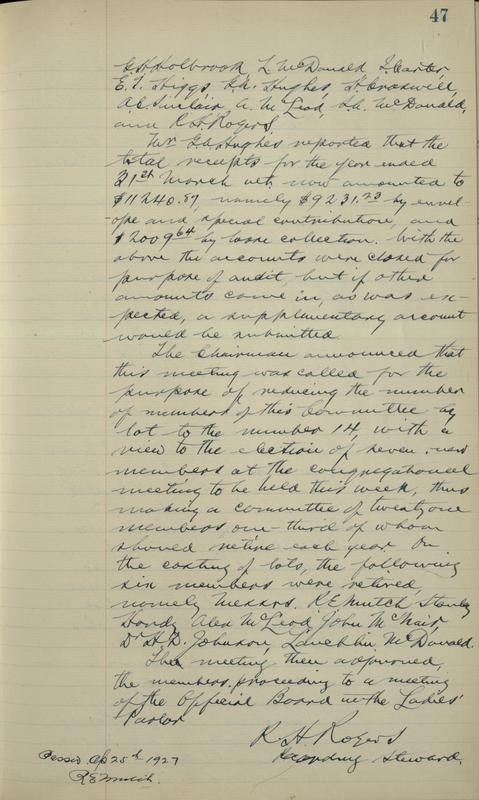 47
G.H. Holbrook, L. McDonald, I. Carter,
E.T. Higgs, G.A. Hughes, H. Croswell,
A.C. Sinclair, A. McLeod, J.A. McDonald,
and R.H. Rogers
Mr G.A. Hughes reported that the
total receipts for the year ended
31st March ult. now amounted to
$11240.87, namely $9231.23 by envel-
ope and special contribution, and
$2009.64 by loose collection. With the
above the accounts were closed for
purpose of audit, but if other
amounts came in, as was ex-
pected, a supplementary account
would be submitted.
The Chairman announced that
this meeting was called for the
purpose of reducing the number
of members of this Committee by
lot to the number 14, with a
view to the election of seven new
members at the congregational
meeting to be held this week, thus
making a committee of twentyone
members, one-third of whom
should retire each year. On
the casting of lots, the following
six members were retired,
namely Messrs. R.E. Mutch, Stanley
Hardy, Alex McLeod, John McNair,
Dr H.D. Johnson, Lauchlin McDonald.
The meeting then adjourned,
the members proceeding to a meeting
of the Official Board in the Ladies'
Parlor
R.H. Rogers
Recording Steward.
Passed Ap 25th 1927
R.E. Mutch.